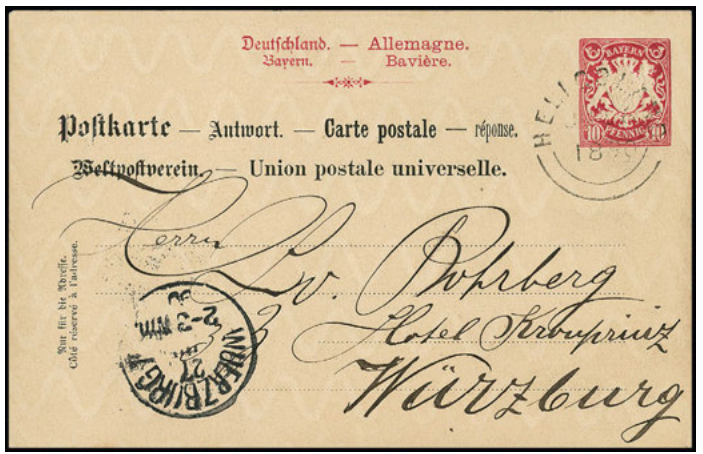 Deutschland. — Allemagne.
Bayern. — Bavière.
BAYERN
10 PFENNIG 10
Postkarte — Antwort. — Carte postale — réponse.
Weltpostverein. — Union postale universelle.
Nur für die Adresse.
Côté réservé à l'adresse.
Herrn
Lw. Rohrberg
Hotel Kronprinz
Würzburg
WUERZBURG I
27
2-3 Nm.
90